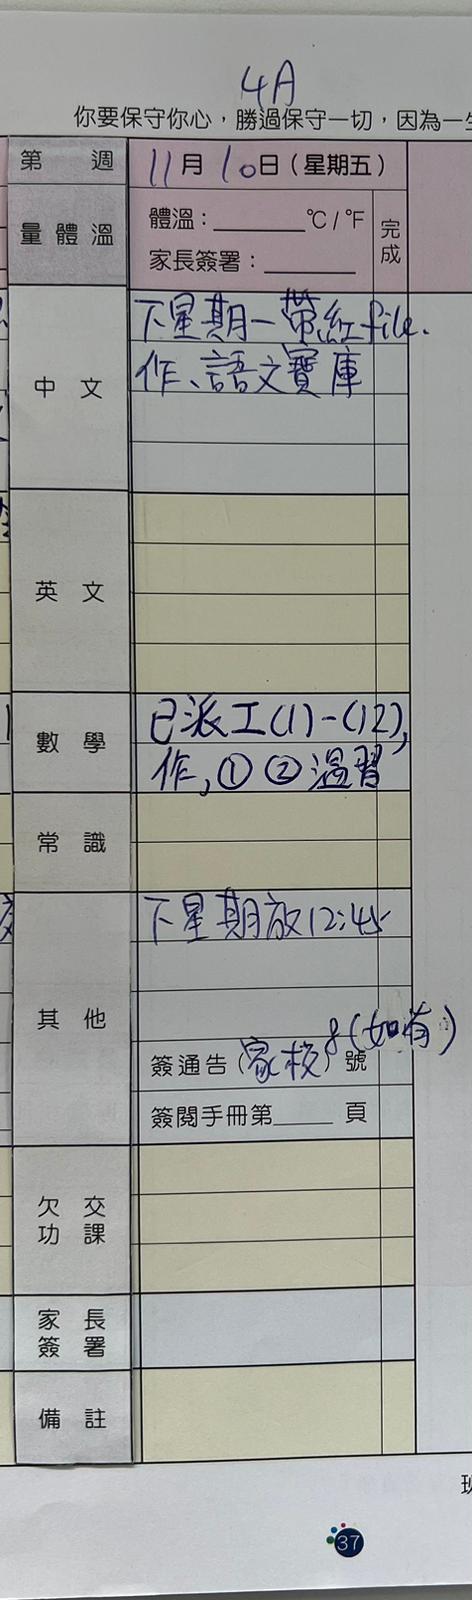 4A
你要保守你心，勝過保守一切，因為一生
第 週
11月10日（星期五）
量體溫
體溫：______℃/℉
家長簽署：______
完成
中文
下星期一帶紅file.
作、語文寶庫
英文
數學
已派工(1)-(12),
作,①②溫習
常識
其他
下星期放12:45
簽通告(家校)8號(如有)
簽閱手冊第____頁
欠交
功課
家長
簽署
備註
班
37